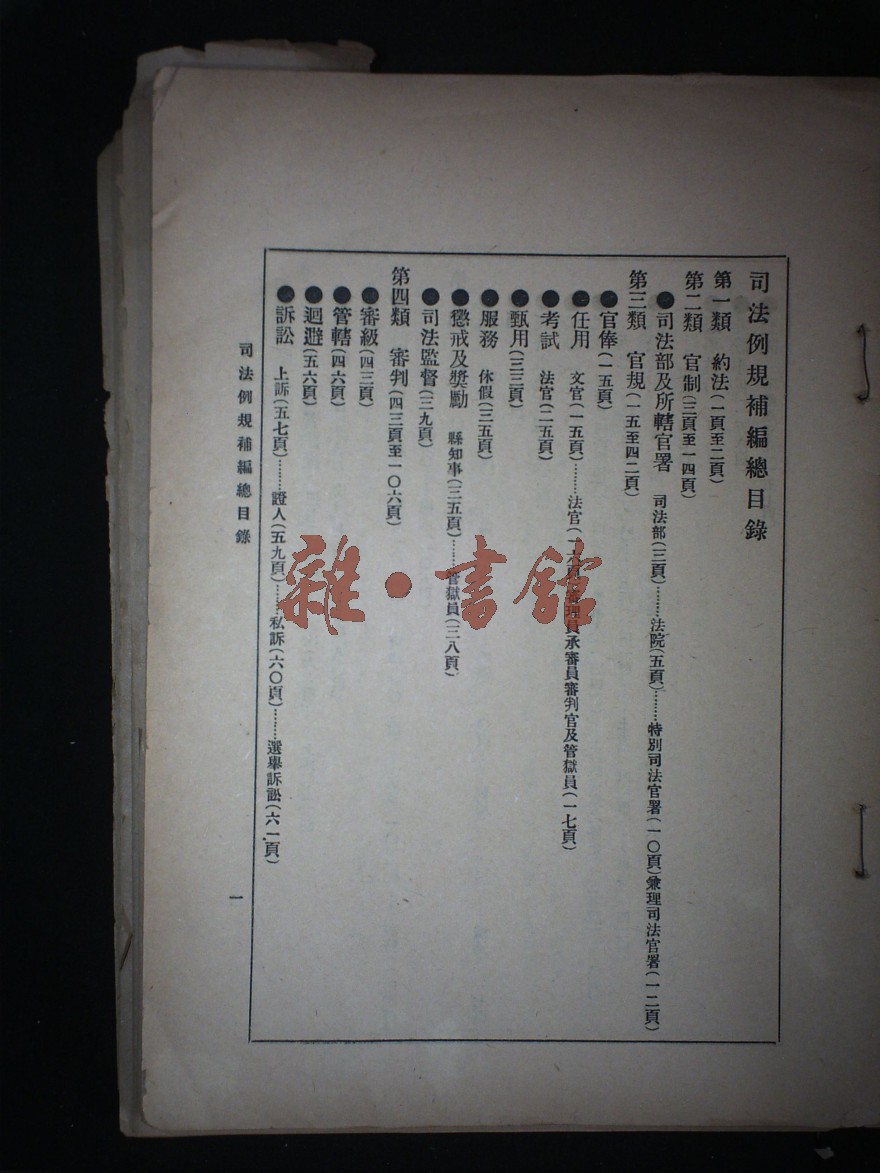 司法例規補編總目錄
第一類 約法(一頁至二頁)
第二類 官制(三頁至一四頁)
司法部及所轄官署 司法部(三頁)………法院(五頁)………特別司法官署(一〇頁)兼理司法官署(一二頁)
第三類 官規(一五至四二頁)
官俸(一五頁)
任用 文官(一五頁)………法官(一六頁)審理員承審員審判官及管獄員(一七頁)
考試 法官(二五頁)
甄用(三三頁)
服務 休假(三五頁)
懲戒及獎勵 縣知事(三五頁)………管獄員(三八頁)
司法監督(三九頁)
第四類 審判(四三頁至一〇六頁)
審級(四三頁)
管轄(四六頁)
迴避(五六頁)
訴訟 上訴(五七頁)………證人(五九頁)………私訴(六〇頁)………選舉訴訟(六一頁)
司法例規補編總目錄
一
雜·書館